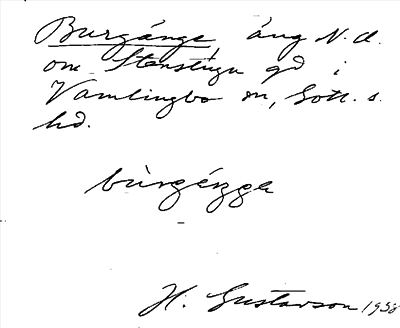 Burgänge äng N.d.
om Stenstugu gd i
Vamlingbo sn, Gotl. s.
hd.
bùrgéngε
H. Gustavson 1938